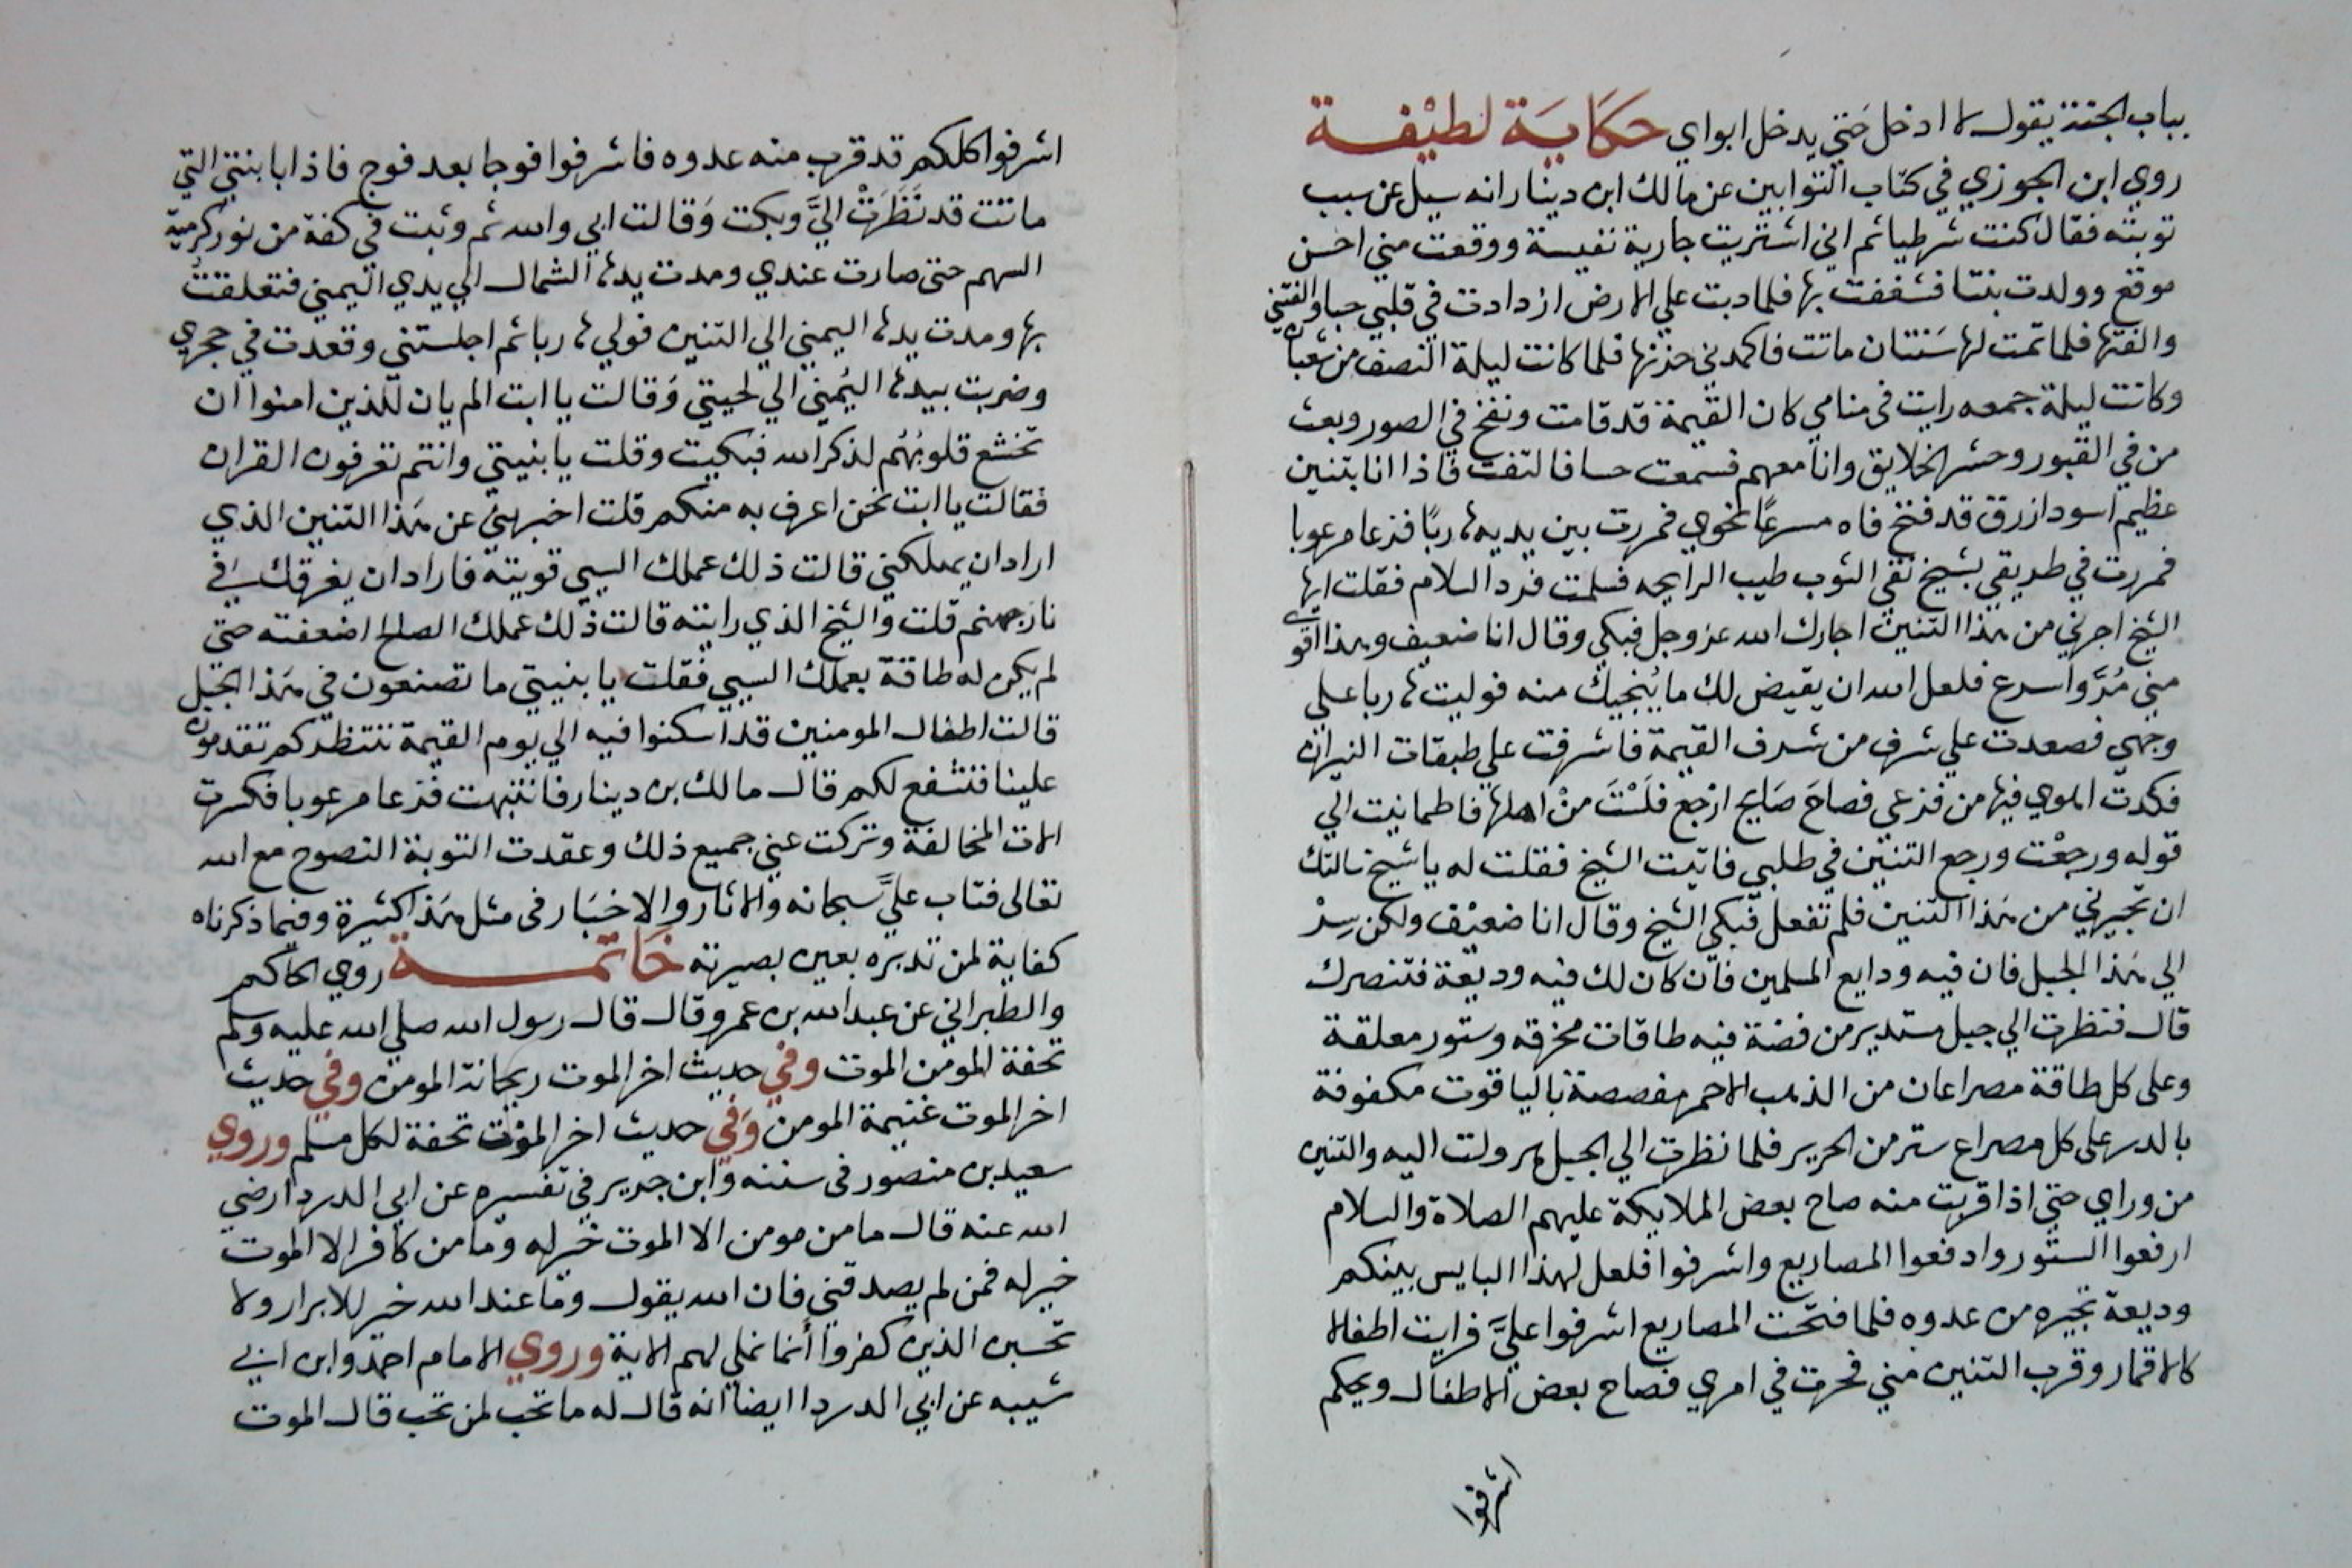 بباب الجنة يقول لا ادخل حتي يدخل ابواي حكاية لطيفة
روي ابن الجوزي في كتاب التوابين عن مالك ابن دينار انه سيل عن سبب
توبته فقال كنت شرطيا ثم اني اشتريت جارية نفيسة ووقعت مني احسن
موقع وولدت بنتا فشغفت بها فلما دبت علي الارض ازدادت في قلبي حبا والفتني
والفتها فلما تمت لها سنتان ماتت فاكمدني حزنها فلما كانت ليلة النصف من شعبان
وكانت ليلة جمعه رايت في منامي كان القيمة قد قامت ونفخ في الصور وبعث
من في القبور وحشر الخلايق وانا معهم فسمعت حسا فالتفت فاذا انا بتنين
عظيم اسود ازرق قد فتح فاه مسرعا نحوي فمررت بين يديه هاربا فزعا مرعوبا
فمررت في طريقي بشيخ نقي الثوب طيب الرايحه فسلمت فرد السلام فقلت ايها
الشيخ اجرني من هذا التنين اجارك الله عز وجل فبكي وقال انا ضعيف وهذا اقوي
مني مر واسرع فلعل الله ان يقيض لك ما ينجيك منه فوليت هاربا علي
وجهي فصعدت علي شرف من شرف القيمة فاشرفت علي طبقات النيران
فكدت اهوي فيها من فزعي فصاح صايح ارجع فلست من اهلها فاطمانيت الي
قوله ورجعت ورجع التنين في طلبي فاتيت الشيخ فقلت له يا شيخ سالتك
ان تجيرني من هذا التنين فلم تفعل فبكي الشيخ وقال انا ضعيف ولكن سر
الي هذا الجبل فان فيه ودايع المسلمين فان كان لك فيه وديعة فتنصرك
قال فنظرت الي جبل مستدير من فضة فيه طاقات مخرقه وستور معلقة
وعلى كل طاقة مصراعان من الذهب الاحمر مفصصة باليا قوت مكفوفة
بالدر على كل مصراع ستر من الحرير فلما نظرت الي الجبل هرولت اليه والتنين
من وراي حتي اذا قربت منه صاح بعض الملايكة عليهم الصلاة والسلام
ارفعوا الستور وادفعوا المصاريع واشرفوا فلعل لهذا البايس بينكم
وديعة تجيره من عدوه فلما فتحت المصاريع اشرفوا علي فرايت اطفالا
كالاقمار وقرب التنين مني فحرت في امري فصاح بعض الاطفال ويحكم
اشرفوا
اشرفوا كلكم قد قرب منه عدوه فاشرفوا فوجا بعد فوج فاذا بابنتي التي
ماتت قد نظرت الي وبكت وقالت ابي والله ثم وثبت في كفة من نور كرمية
السهم حتى صارت عندي ومدت يدها الشمال الي يدي اليمني فتعلقت
بها ومدت يدها اليمني الي التنين فولي هاربا ثم اجلستني وقعدت في حجري
وضربت بيدها اليمني الي لحيتي وقالت يا ابت الم يان للذين امنوا ان
تخشع قلوبهم لذكر الله فبكيت وقلت يا بنيتي وانتم تعرفون القران
فقالت يا ابت نحن اعرف به منكم قلت اخبريني عن هذا التنين الذي
اراد ان يهلكني قالت ذلك عملك السيي قويته فاراد ان يغرقك في
نار جهنم قلت والشيخ الذي رايته قالت ذلك عملك الصالح اضعفته حتى
لم يكن له طاقة بعملك السيي فقلت يا بنيتي ما تصنعون في هذا الجبل
قالت اطفال المومنين قد اسكنوا فيه الي يوم القيمة ننتظركم تقدمون
علينا فنشفع لكم قال مالك بن دينار فانتبهت فزعا مرعوبا فكسرت
الات المخالفة وتركت عني جميع ذلك وعقدت التوبة النصوح مع الله
تعالى فتاب علي سبحانه والاثار والاخبار في مثل هذا كثيرة وفيما ذكرناه
كفاية لمن تدبره بعين بصيرته خاتمة روي الحاكم
والطبراني عن عبدالله بن عمرو قال قال رسول الله صلي الله عليه وسلم
تحفة المومن الموت وفي حديث اخر الموت ريحانة المومن وفي حديث
اخر الموت غنيمة المومن وفي حديث اخر الموت تحفة لكل مسلم وروي
سعيد بن منصور في سننه وابن جرير في تفسيره عن ابي الدردا رضي
الله عنه قال ما من مومن الا الموت خير له وما من كافر الا الموت
خير له فمن لم يصدقني فان الله يقول وما عند الله خير للابرار ولا
تحسبن الذين كفروا انما نملي لهم الاية وروي الامام احمد وابن ابي
شيبه عن ابي الدردا ايضا انه قال له ما تحب لمن تحب قال الموت